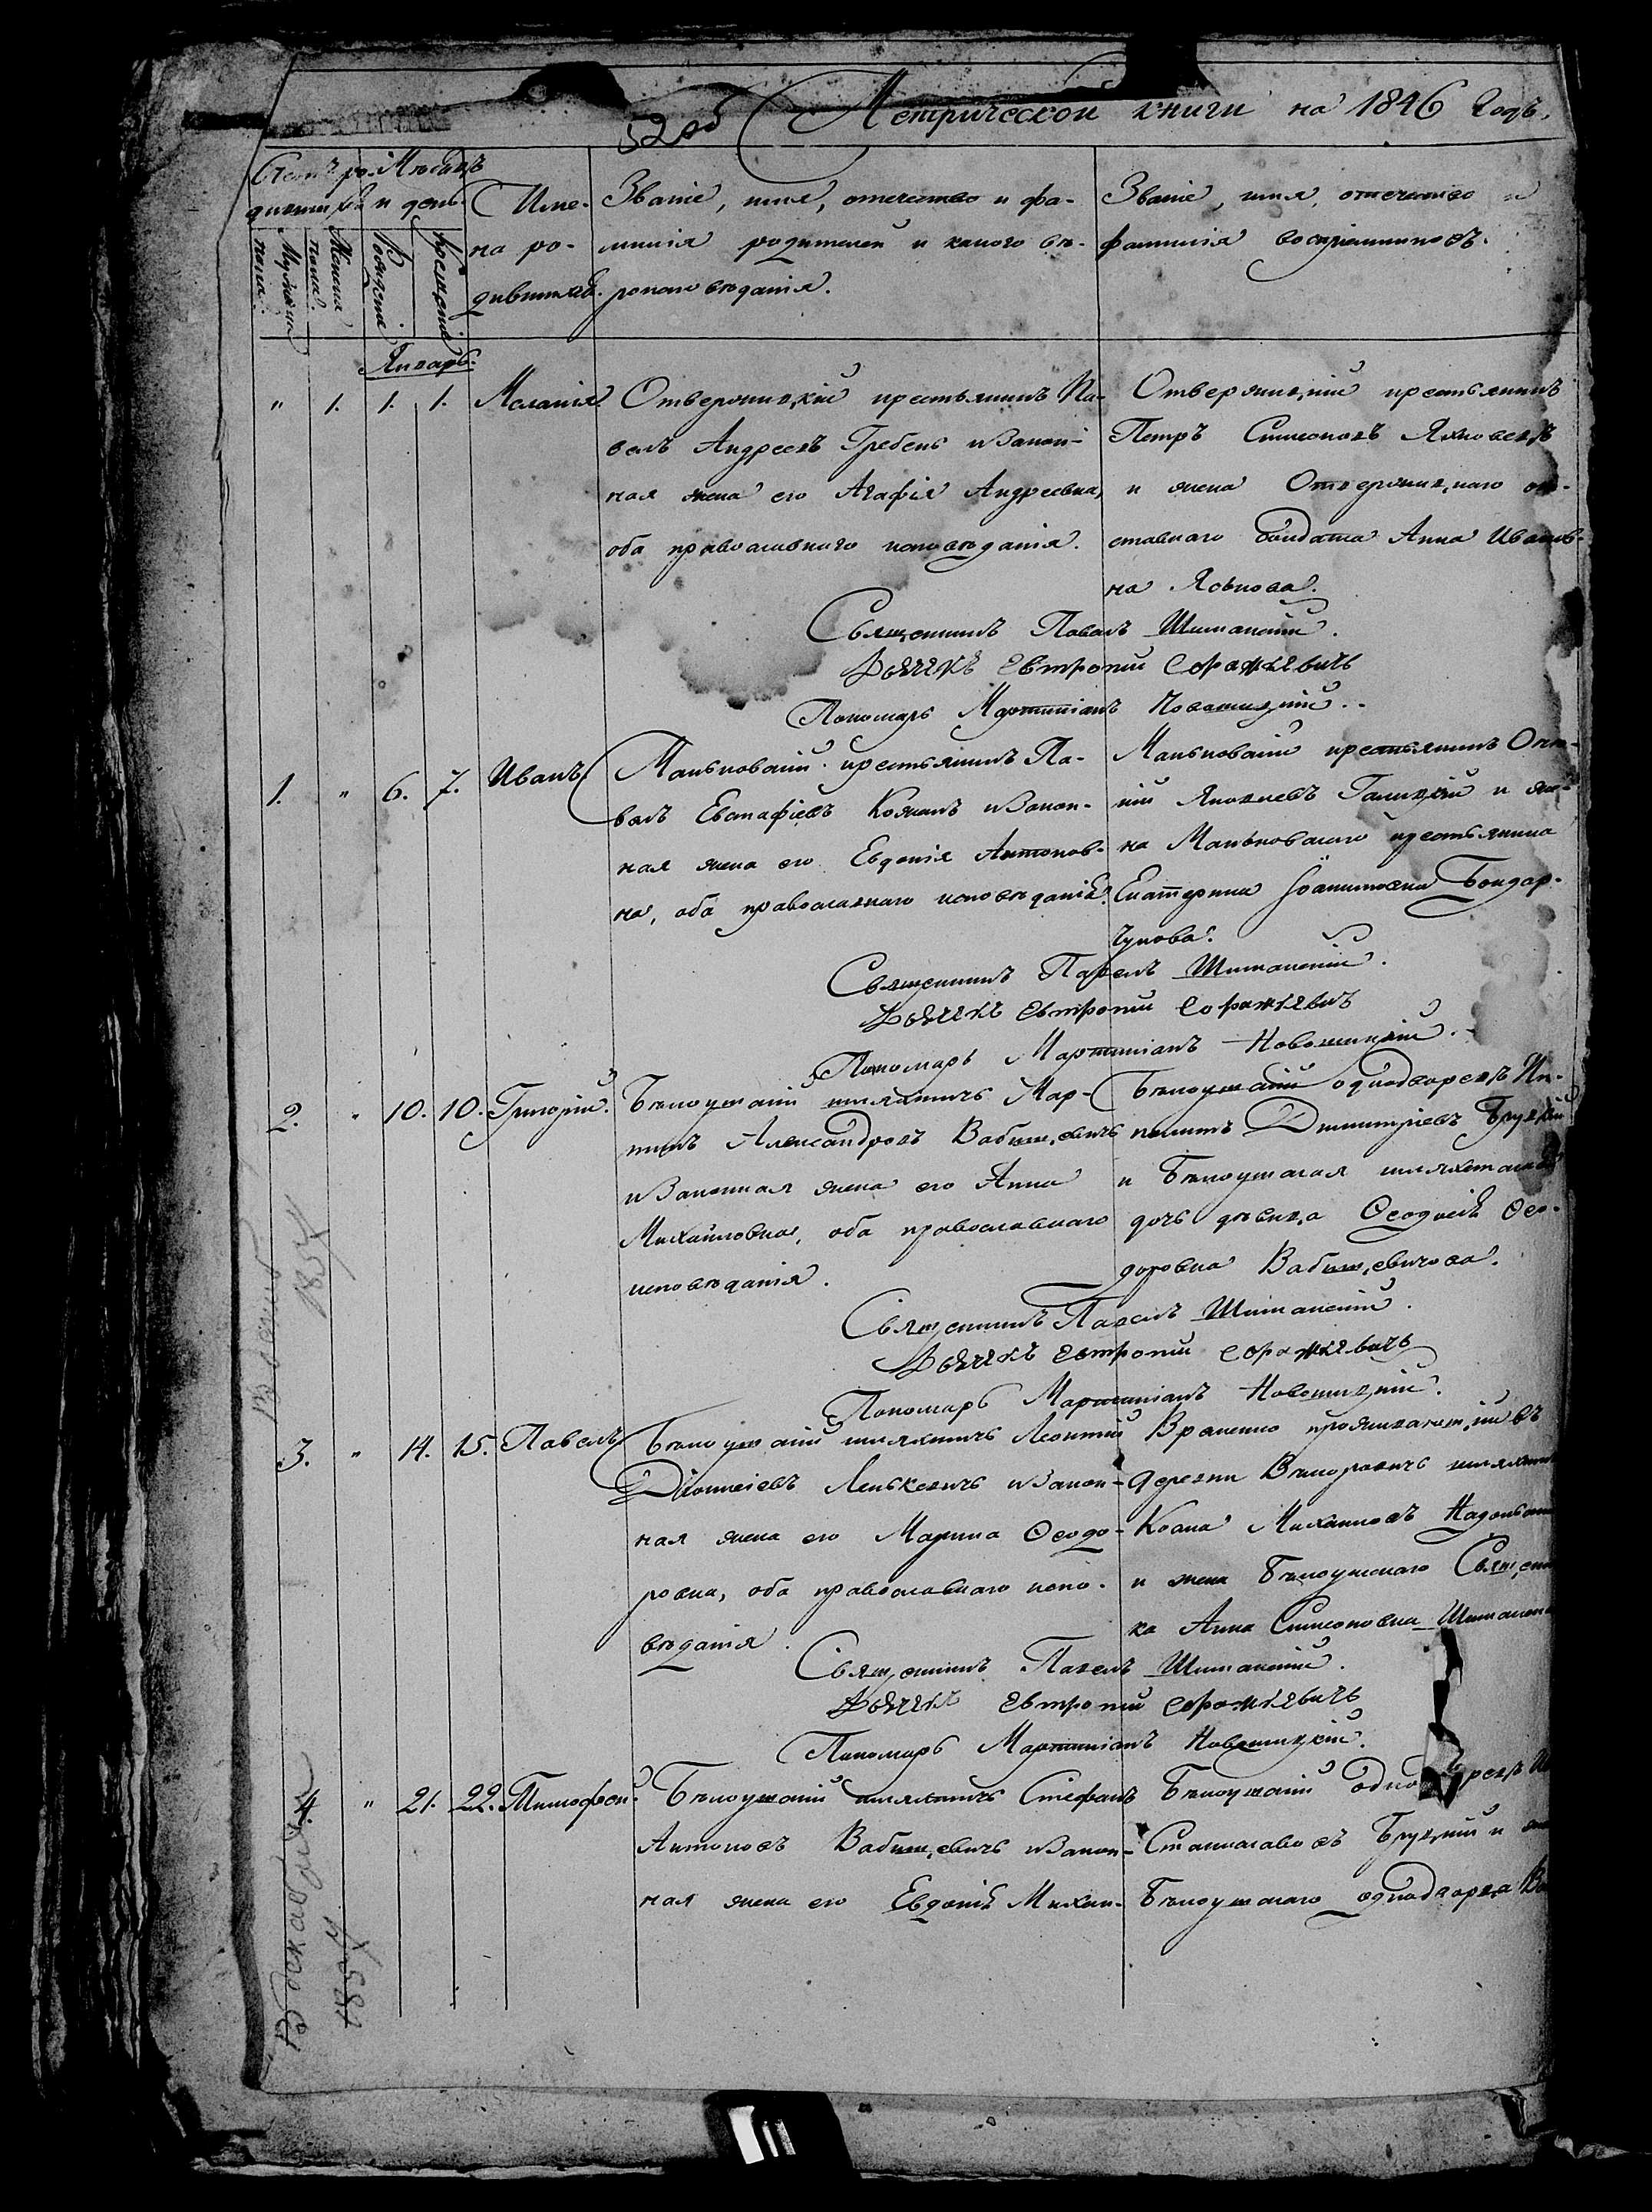 52 об Метрической книги на 1846 годъ,
Счетъ ро- Мѣсяцъ
дившихся и день
Муженска пола.
Женска пола.
Рожденія
Крещенія
Име-
на ро-
дившихся.
Званіе, имя, отечество и фа-
милія родителей и какого вѣ-
роисповѣданія.
Званіе, имя, отечество и
фамилія воспріемниковъ.
Январь.
" 1. 1. 1. Меланія
Отвержицкій крестьянинъ Па-
велъ Андреевъ Гребень и закон-
ная жена его Агафія Андреевна,
оба православнаго исповѣданія.
Отвержицкій крестьянинъ
Петръ Симеоновъ Яхновецъ
и жена Отвержицкаго от-
ставнаго солдата Анна Иванов-
на
Священникъ Павелъ Шиманскій.
Дьячекъ Евтропій
Пономарь Мартиніанъ Новошицкій.
1. " 6. 7. Иванъ
Маньковскій крестьянинъ Па-
велъ Евстафіевъ Кожанъ и закон-
ная жена его Евдокія Антонов-
на, оба православнаго исповѣданія.
Маньковскій крестьянинъ
Яковлевъ Галицкій и же-
на Маньковскаго крестьянина
Екатерина Іоакимовна Бондар-
чукова.
Священникъ Павелъ Шиманскій.
Дьячекъ Евтропій
Пономарь Мартиніанъ Новошицкій.
2. " 10. 10. Григорій.
Бѣлоушскій шляхтичъ Мар-
тинъ Александровъ Вабищевичъ
и законная жена его Анна
Михайловна, оба православнаго
исповѣданія.
Бѣлоушскій однодворецъ Ип-
политъ Димитріевъ Бруцкій
и Бѣлоушская шляхетская
дочь дѣвица Ѳеодосія Ѳео-
доровна Вабищевичова.
Священникъ Павелъ Шиманскій.
Дьячекъ Евтропій
Пономарь Мартиніанъ Новошицкій.
3. " 14. 15. Павелъ
Бѣлоушскій шляхтичъ Леонтій
Діонисіевъ Ленькевичъ и закон-
ная жена его Марина Ѳеодо-
ровна, оба православнаго испо-
вѣданія.
Временно проживающій въ
деревни шляхтичъ
Михаиловъ
и жена Бѣлоушскаго Священни-
ка Анна Симеоновна Шиманск
Священникъ Павелъ Шиманскій.
Дьячекъ Евтропій
Пономарь Мартиніанъ Новошицкій.
4. " 21. 22. Тимофей.
Бѣлоушскій шляхтичъ Стефанъ
Антоновъ Вабищевичъ и закон-
ная жена его Евдокія Михаи-
Бѣлоушскій однодворецъ
Станиславовъ Бруцкій и
Бѣлоушскаго однодворца
1857
1854